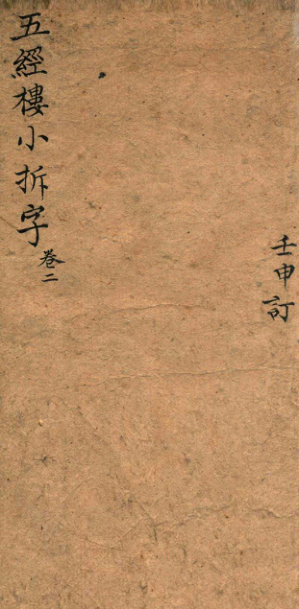 五經樓小拆字
卷二
壬申訂